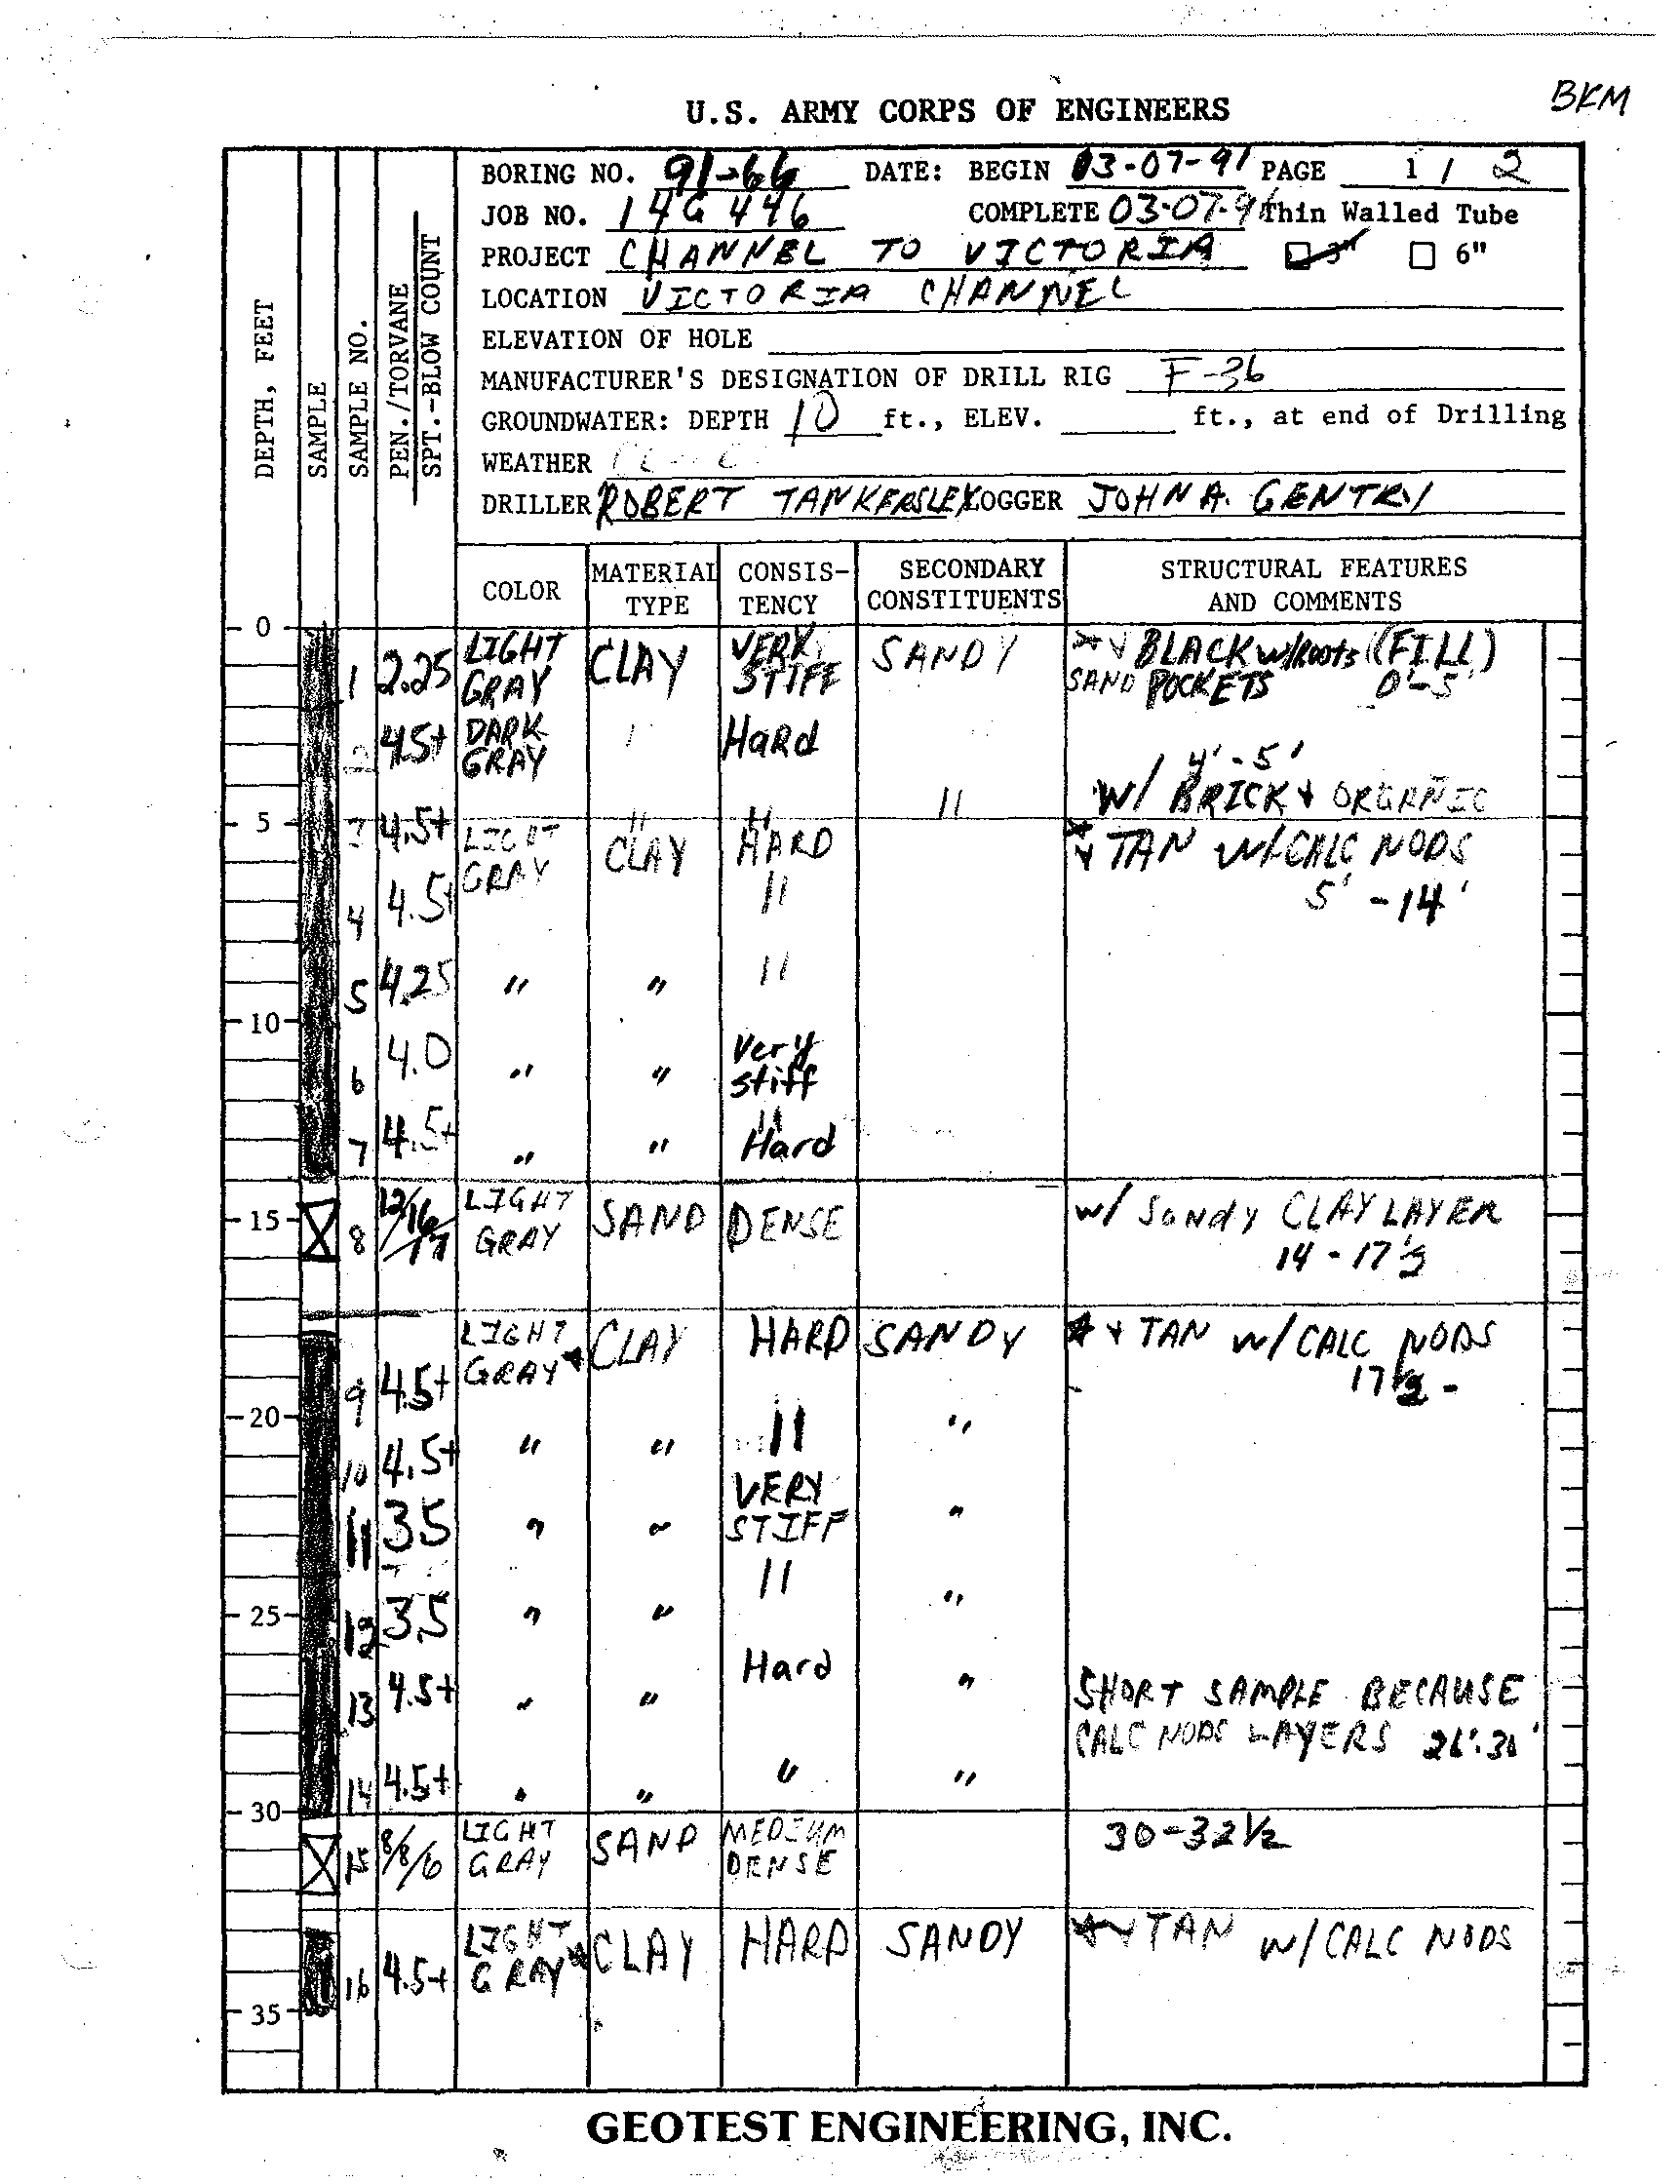 BKM
U.S. ARMY CORPS OF ENGINEERS
BORING NO. 91-66 DATE: BEGIN 03-07-91 PAGE 1 / 2
JOB NO. 14G446 COMPLETE 03-07-91 Thin Walled Tube
PROJECT CHANNEL TO VICTORIA 3" 6"
LOCATION VICTORIA CHANNEL
ELEVATION OF HOLE
MANUFACTURER'S DESIGNATION OF DRILL RIG F-36
GROUNDWATER: DEPTH 10 ft., ELEV. ft., at end of Drilling
WEATHER
DRILLER ROBERT TANKERSLEY LOGGER JOHN A. GENTRY
DEPTH, FEET
SAMPLE
SAMPLE NO.
PEN./TORVANE
SPT.-BLOW COUNT
COLOR MATERIAL TYPE CONSIS-TENCY SECONDARY CONSTITUENTS STRUCTURAL FEATURES AND COMMENTS
0
1 2.25 LIGHT GRAY CLAY VERY STIFF SANDY & BLACK w/Roots (FILL)
SAND POCKETS 0'-5'
2 4.5+ DARK GRAY " Hard
4'-5'
" W/ BRICK & ORGANIC
5 3 4.5+ " "
LIGHT GRAY CLAY HARD & TAN W/CALC NODS
4 4.5+ " 5'-14'
5 4.25 " " "
10
6 4.0 " " Very stiff
"
7 4.5+ " " Hard
15 8 12/16/17 LIGHT GRAY SAND DENSE w/ Sandy CLAY LAYER
14 - 17½
LIGHT GRAY CLAY HARD SANDY & TAN W/CALC NODS
9 4.5+ 17½ -
20
10 4.5+ " " " "
11 3.5 " " VERY STIFF "
"
25 12 3.5 " " "
13 4.5+ " " Hard " SHORT SAMPLE BECAUSE
CALC NODS LAYERS 26'-30'
14 4.5+ " " " "
30
15 8/8/6 LIGHT GRAY SAND MEDIUM DENSE 30-32½
16 4.5+ LIGHT GRAY CLAY HARD SANDY & TAN W/CALC NODS
35
GEOTEST ENGINEERING, INC.